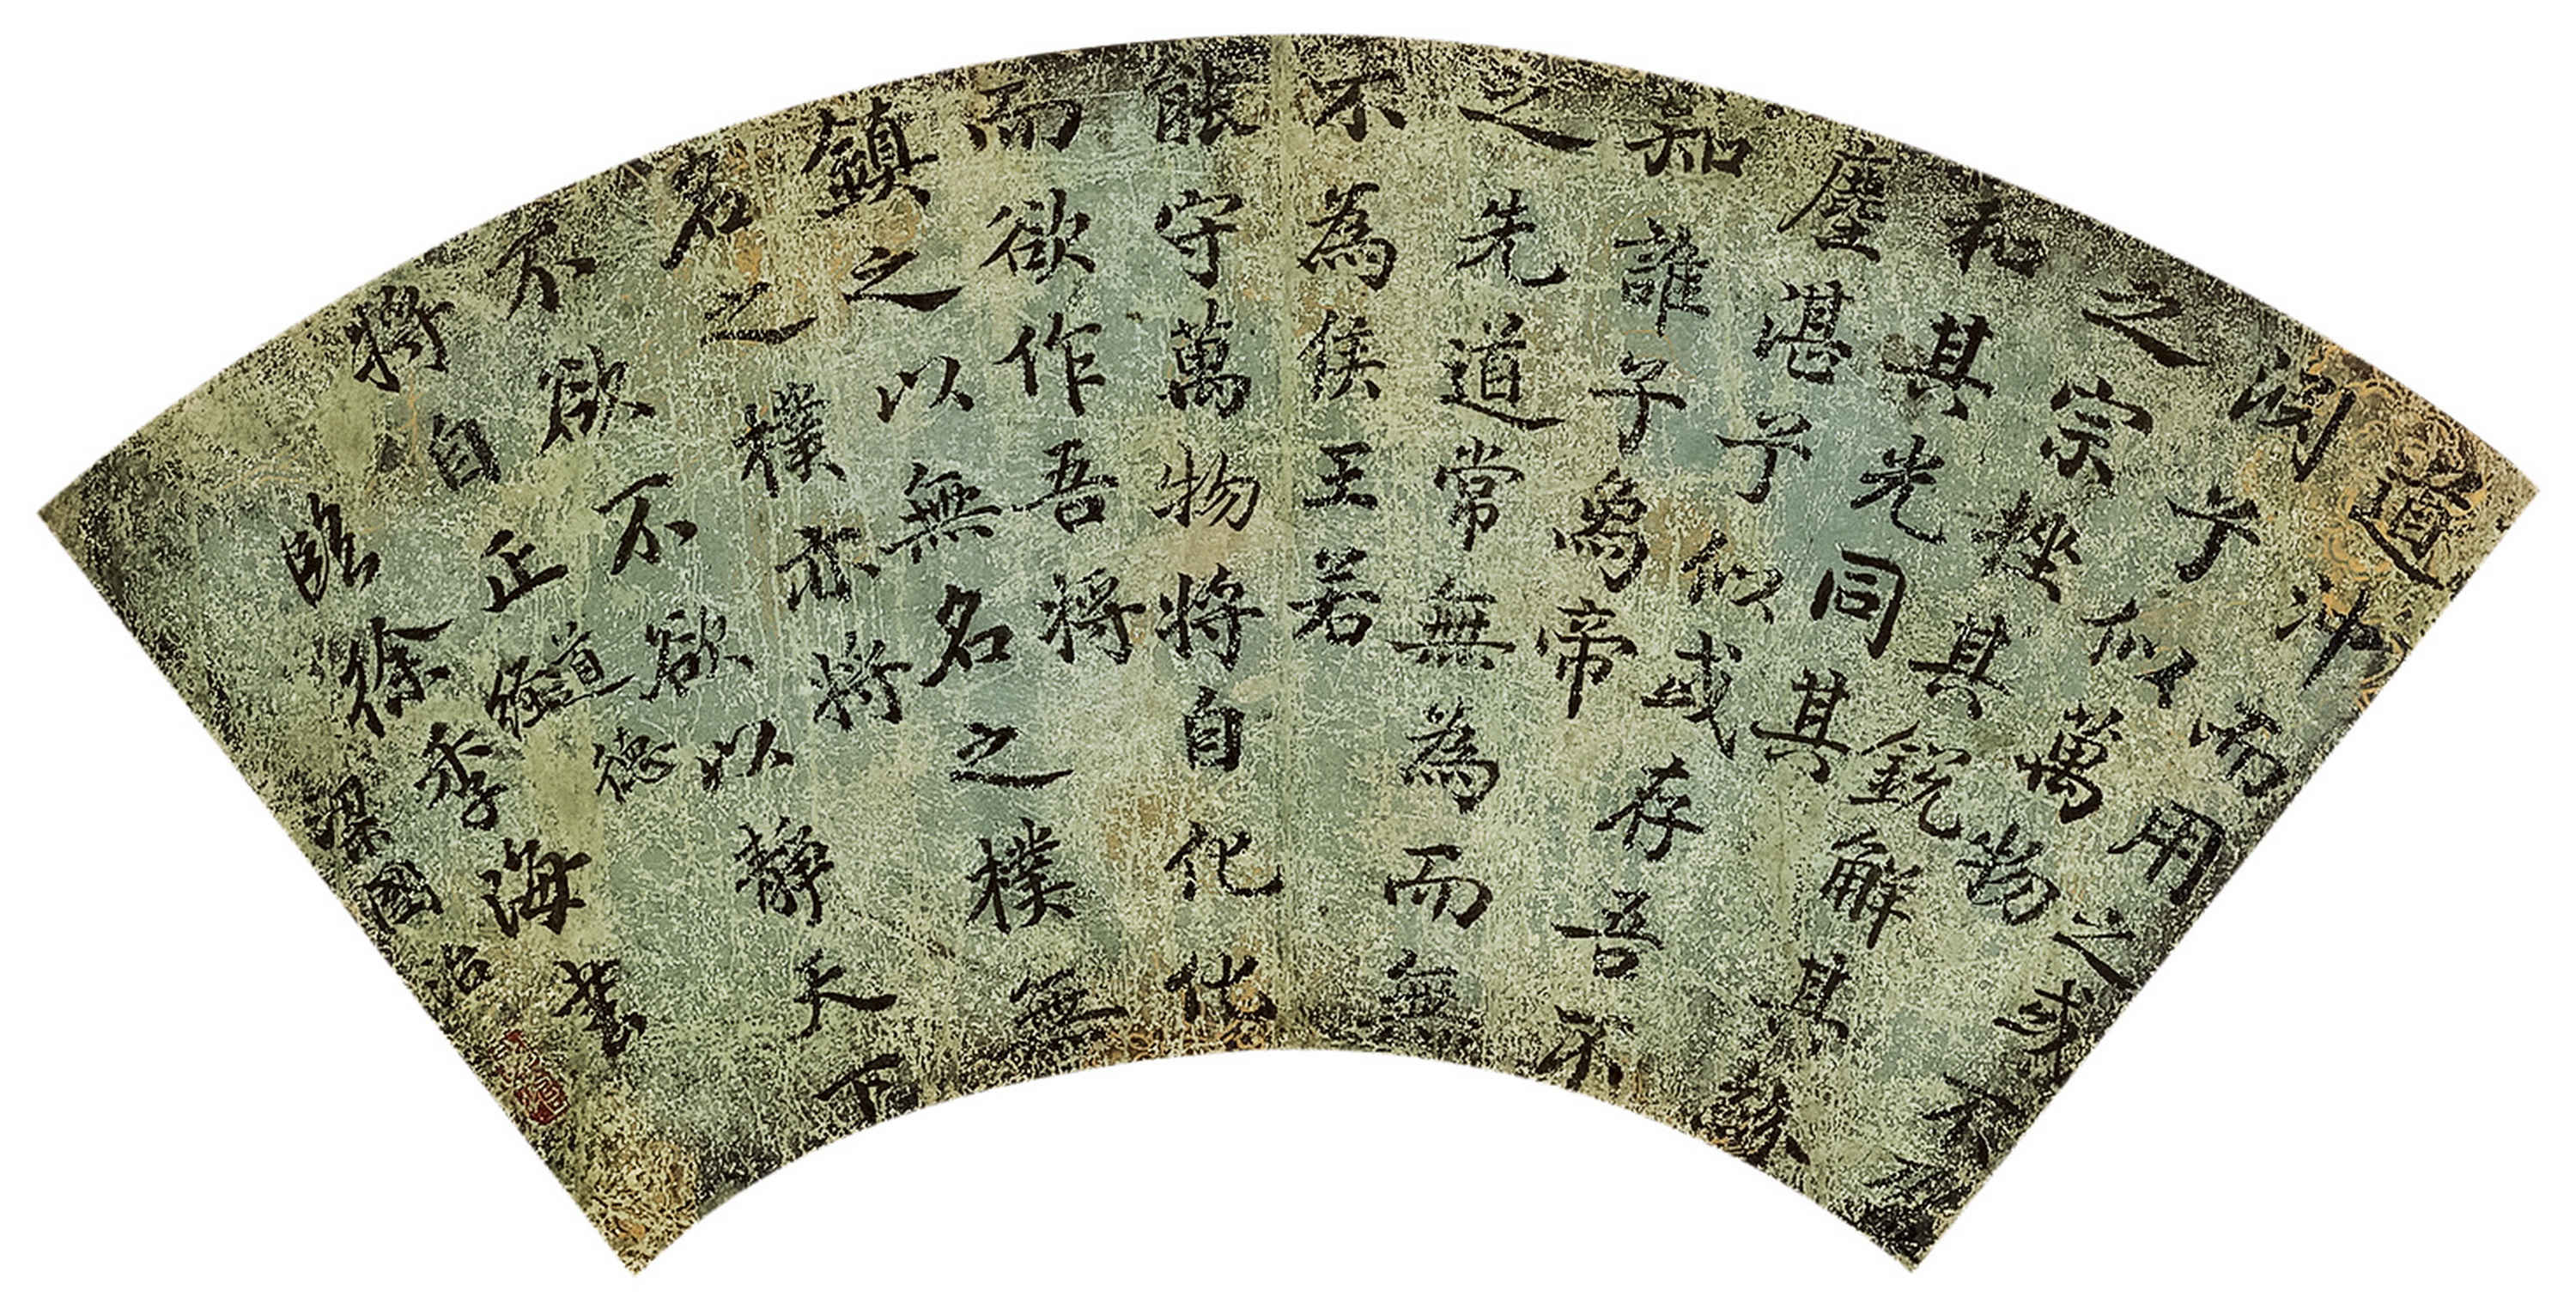 道冲而用之或不盈
渊兮似萬物
之宗挫其銳解其紛
和其光同其
塵湛兮似或存吾不
知誰子為帝
之先道常無為而無
不為侯王若
能守萬物將自化化
而欲作吾將
鎮之以無名之樸無
名之樸亦將
不欲不欲以靜天下
將自正
道德
經
臨徐季海書
梁國治